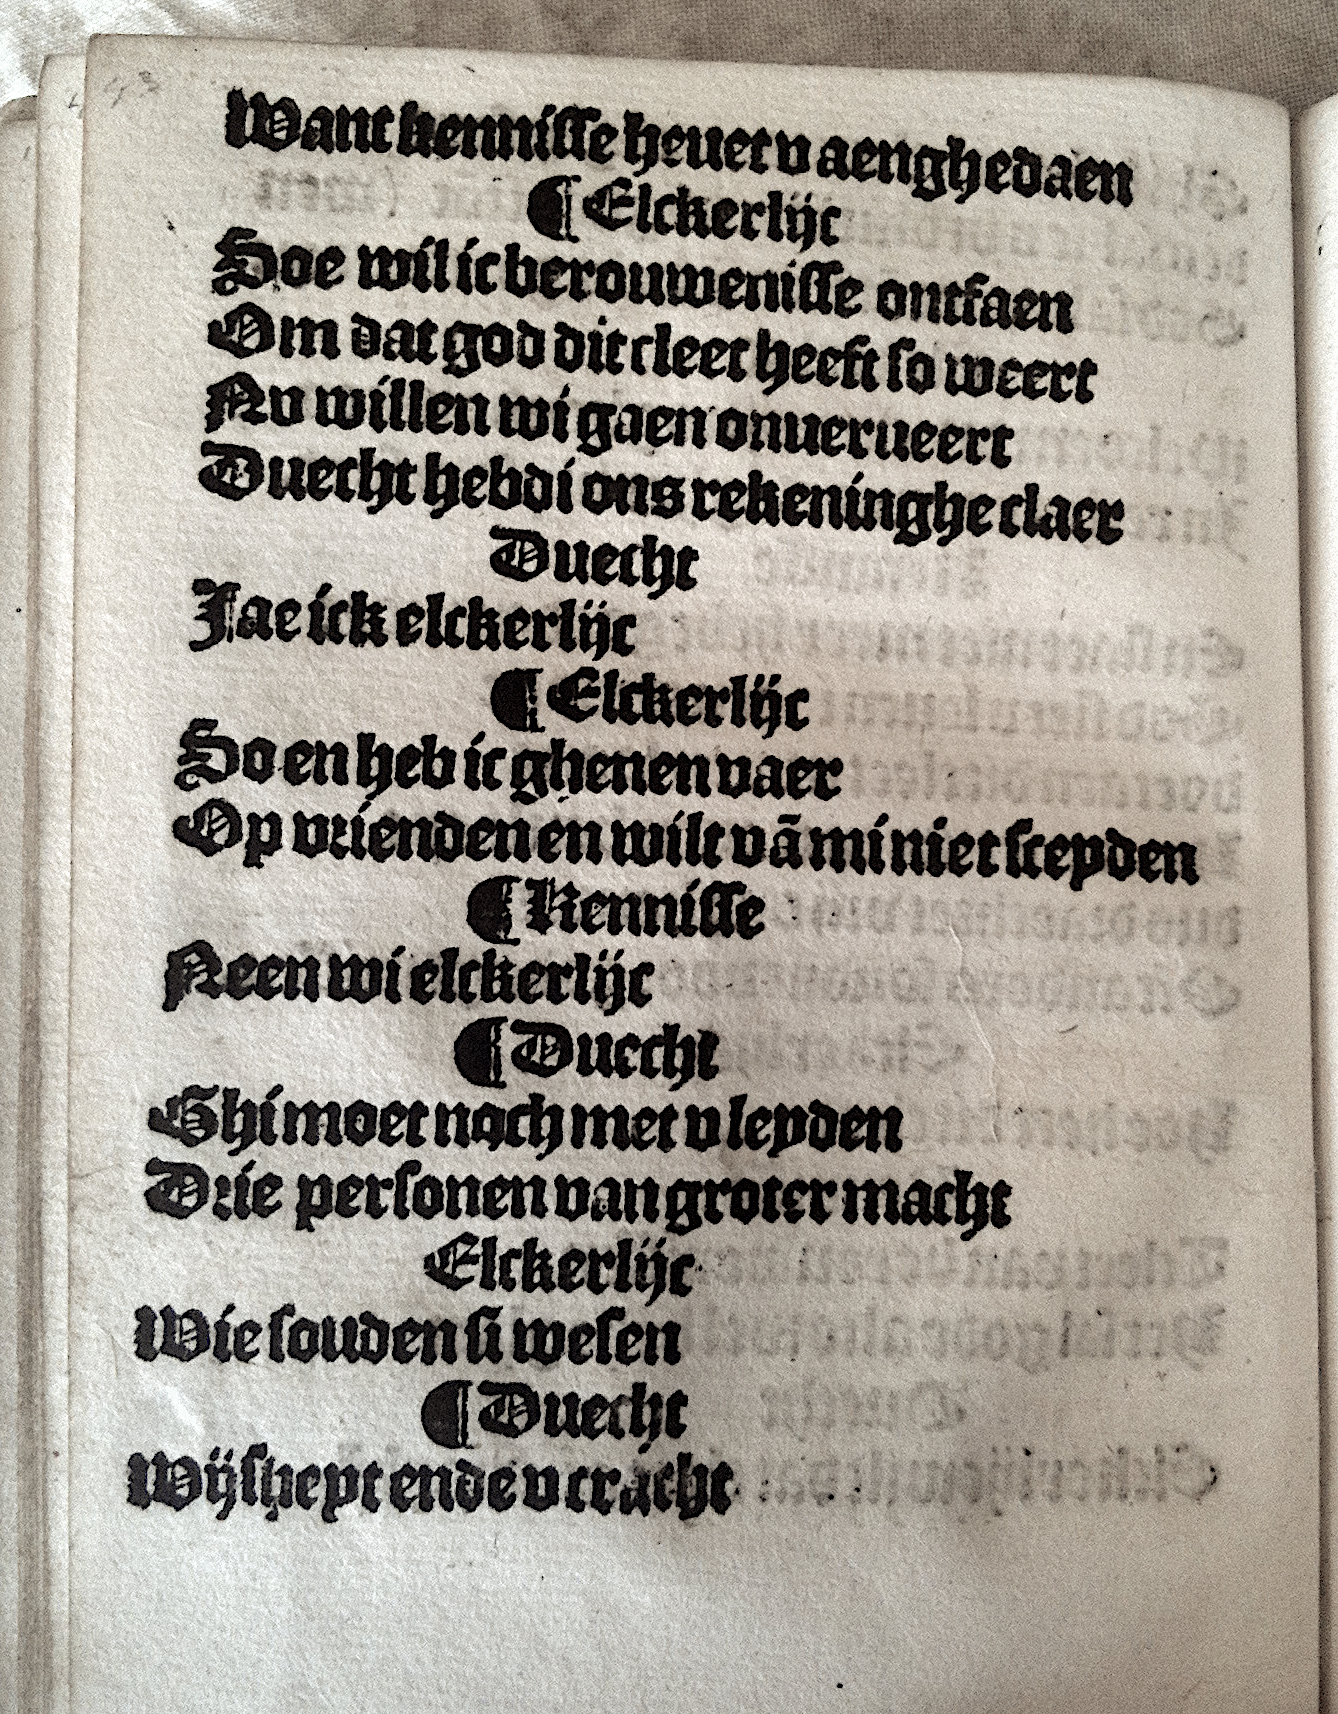 Want kennisse heuet v aenghedaen
¶ Elckerlijc
Soe wil ic berouwenisse ontfaen
Om dat god dit cleet heeft so weert
Nv willen wi gaen onuerueert
Duecht hebdi ons rekeninghe claer
Duecht
Jae ick elckerlijc
¶ Elckerlijc
So en heb ic ghenen vaer
Op vrienden en wilt vā mi niet sceyden
¶ Kennisse
Neen wi elckerlijc
¶ Duecht
Ghi moet noch met v leyden
Drie personen van groter macht
Elckerlijc
Wie souden si wesen
¶ Duecht
Wijsheyt ende v cracht